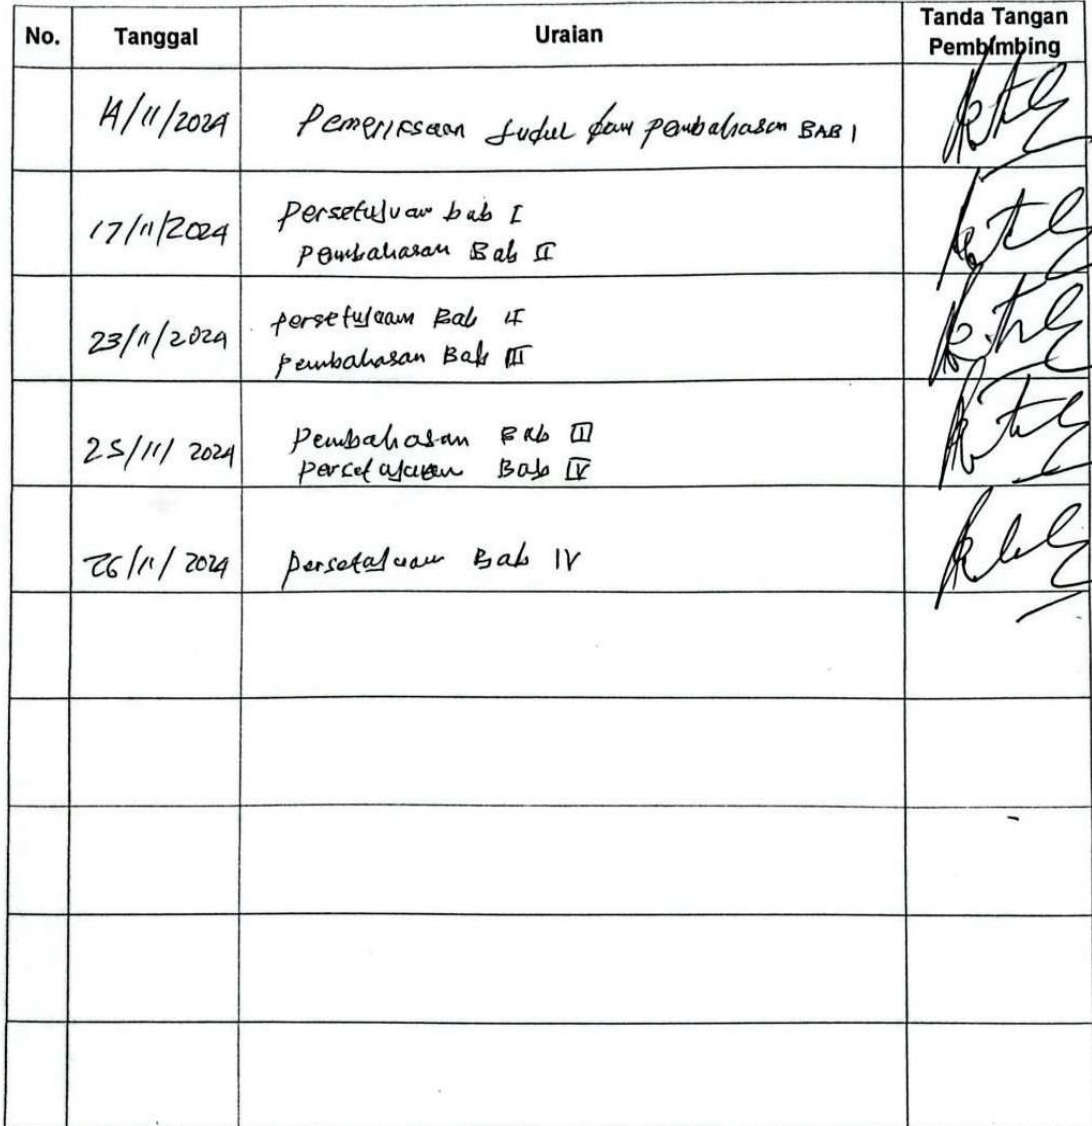 No. Tanggal Uraian Tanda Tangan Pembimbing
14/11/2024 Pemeriksaan Judul dan pembahasan BAB I
17/11/2024 Persetujuan bab I
Pembahasan Bab II
23/11/2024 persetujuan Bab II
Pembahasan Bab III
25/11/2024 Pembahasan Bab III
persetujuan Bab IV
26/11/2024 persetujuan Bab IV